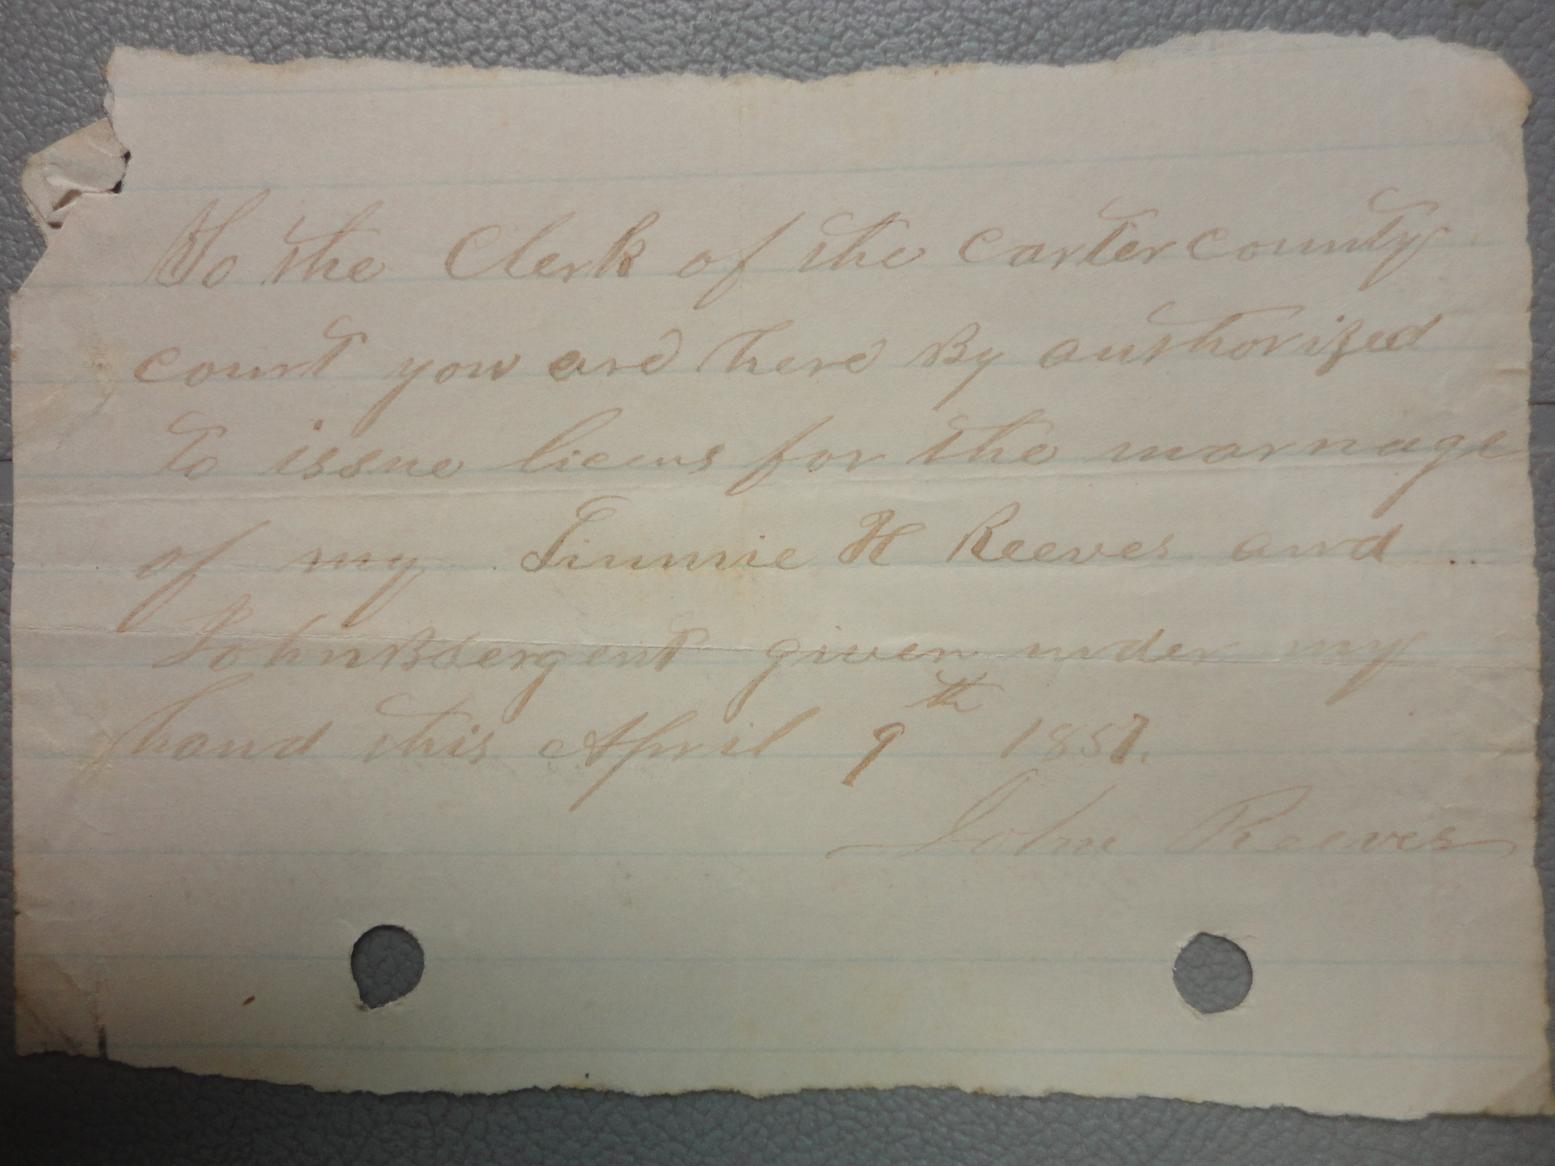 To the Clerk of the Carter county
court you are here By authorized
to issue licens for the marriage
of my Tinnie H Reeves and
John B Sergent given under my
hand this April 9th 1857.
John Reeves